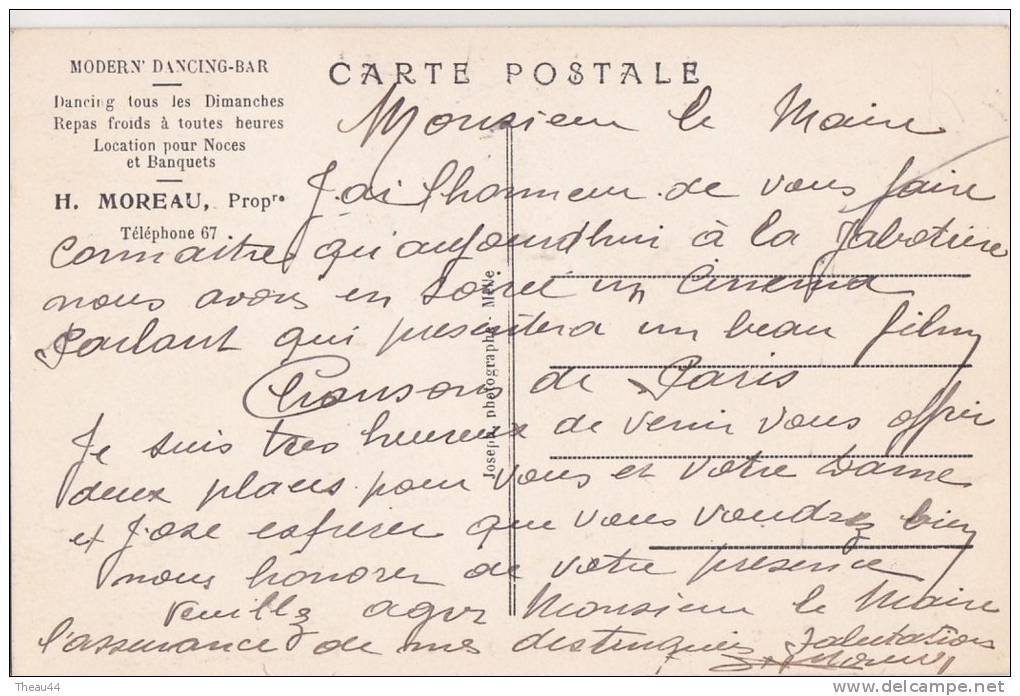 MODERN' DANCING-BAR
Dancing tous les Dimanches
Repas froids à toutes heures
Location pour Noces
et Banquets
H. MOREAU, Propre
Téléphone 67
CARTE POSTALE
Joseph, photographe. Melle
Monsieur le Maire
J'ai l'honneur de vous faire
connaitre qu'aujourdhui à la Jabotiere
nous avons en soireé un Cinema
Parlant qui presentera un beau film
Chansons de Paris
Je suis tres heureux de venir vous offrir
deux places pour vous et votre Dame
et J'ose esperer que vous voudrez bien
nous honorer de votre presence
Veuillez agrer Monsieur le Maire
l'assurance de mes distinguées Salutations
Theau44
delcampe.net